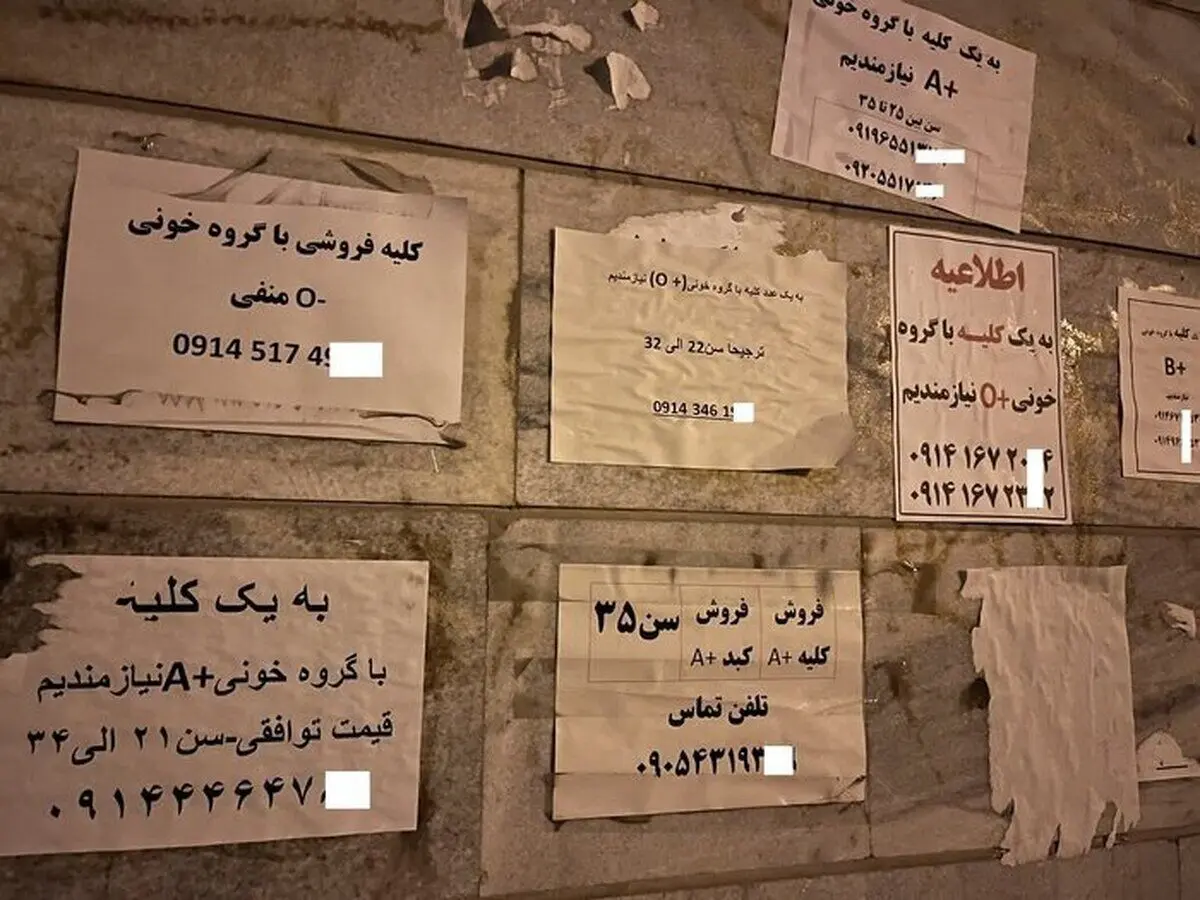 به یک کلیه با گروه خونی
A+ نیازمندیم
سن بین ۲۵ تا ۳۵
۰۹۱۹۶۵۵۱۳
۰۹۲۰۵۵۱۷
کلیه فروشی با گروه خونی
O- منفی
0914 517 49
به یک عدد کلیه با گروه خونی(O +) نیازمندیم
ترجیحا سن22 الی 32
0914 346 19
اطلاعیه
به یک کلیه با گروه
خونی O+ نیازمندیم
۰۹۱۴ ۱۶۷ ۲۰ ۴
۰۹۱۴ ۱۶۷ ۲۳ ۲
کلیه با گروه خونی
B+
نیازمندیم
به یک کلیه
با گروه خونی A+نیازمندیم
قیمت توافقی-سن ۲۱ الی ۳۴
۰۹۱۴۴۴۶۴۷
فروش کلیه A+
فروش کبد A+
سن ۳۵
تلفن تماس
۰۹۰۵۴۳۱۹۳